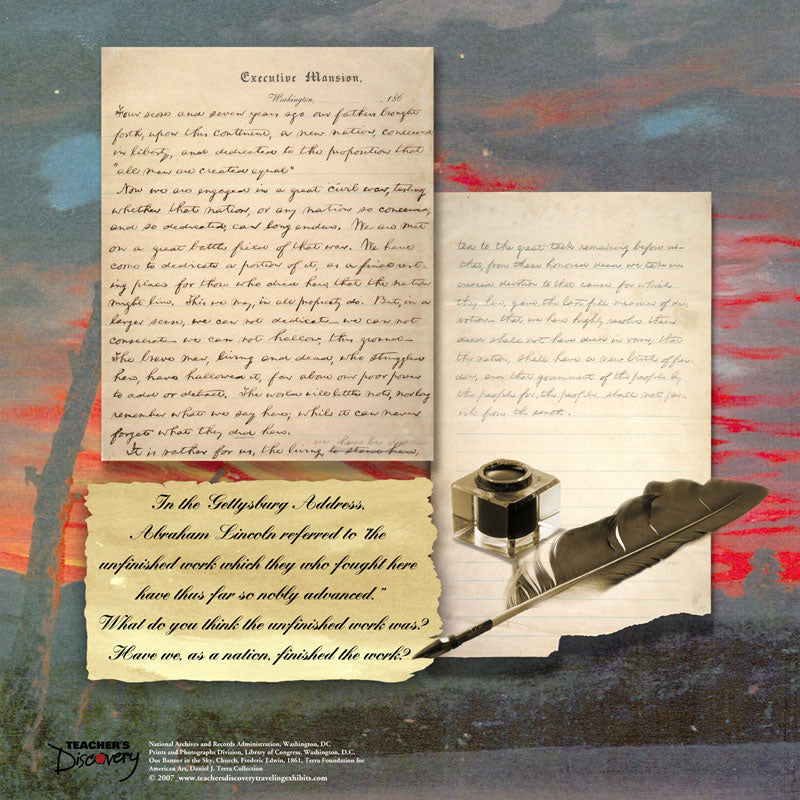 Executive Mansion,
Washington, , 186
Four score and seven years ago our fathers brought
forth, upon this continent, a new nation, conceived
in liberty, and dedicated to the proposition that
"all men are created equal"
Now we are engaged in a great civil war, testing
whether that nation, or any nation so conceived,
and so dedicated, can long endure. We are met
on a great battle field of that war. We have
come to dedicate a portion of it, as a final rest-
ing place for those who died here, that the nation
might live. This we may, in all propriety do. But, in a
larger sense, we can not dedicate — we can not
consecrate — we can not hallow, this ground —
The brave men, living and dead, who struggled
here, have hallowed it, far above our poor power
to add or detract. The world will little note, nor long
remember what we say here; while it can never
forget what they did here.
we here be dedica-
It is rather for us, the living, to stand here,
ted to the great task remaining before us —
that, from these honored dead we take in-
creased devotion to that cause for which
they here, gave the last full measure of de-
votion — that we here highly resolve these
dead shall not have died in vain; that
the nation, shall have a new birth of free-
dom, and that government of the people by
the people for the people, shall not per-
ish from the earth.
In the Gettysburg Address,
Abraham Lincoln referred to "the
unfinished work which they who fought here
have thus far so nobly advanced."
What do you think the unfinished work was?
Have we, as a nation, finished the work?
TEACHER'S
Discovery
National Archives and Records Administration, Washington, DC
Prints and Photographs Division, Library of Congress, Washington, D.C.
Our Banner in the Sky, Church, Frederic Edwin, 1861, Terra Foundation for
American Art, Daniel J. Terra Collection
© 2007 www.teachersdiscoverytravelingexhibits.com